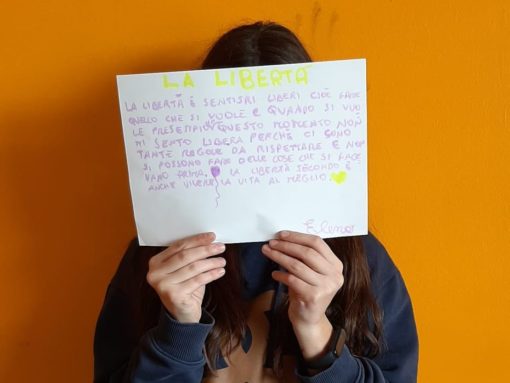 LA LIBERTÀ
LA LIBERTÀ È SENTISRI LIBERI CIOÈ FARE
QUELLO CHE SI VUOLE E QUANDO SI VUO
LE PRESEMPIO QUESTO MOMENTO NON
MI SENTO LIBERA PERCHE CI SONO
TANTE REGOLE DA RISPETTARE E NON
SI POSSONO FARE DELLE COSE CHE SI FACE
VANO PRIMA. LA LIBERTÀ SECONDO È
ANCHE VIVERE LA VITA AL MEGLIO.